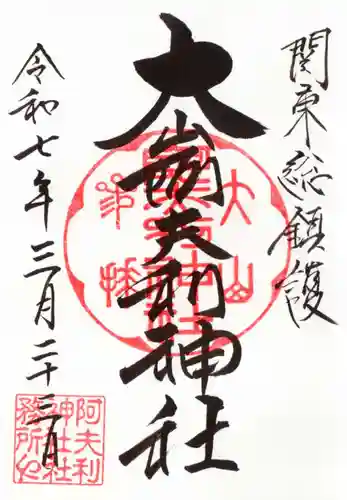 関東総鎮護
大山阿夫利神社
令和七年三月二十三日
大山
阿夫利
神社社
務所之